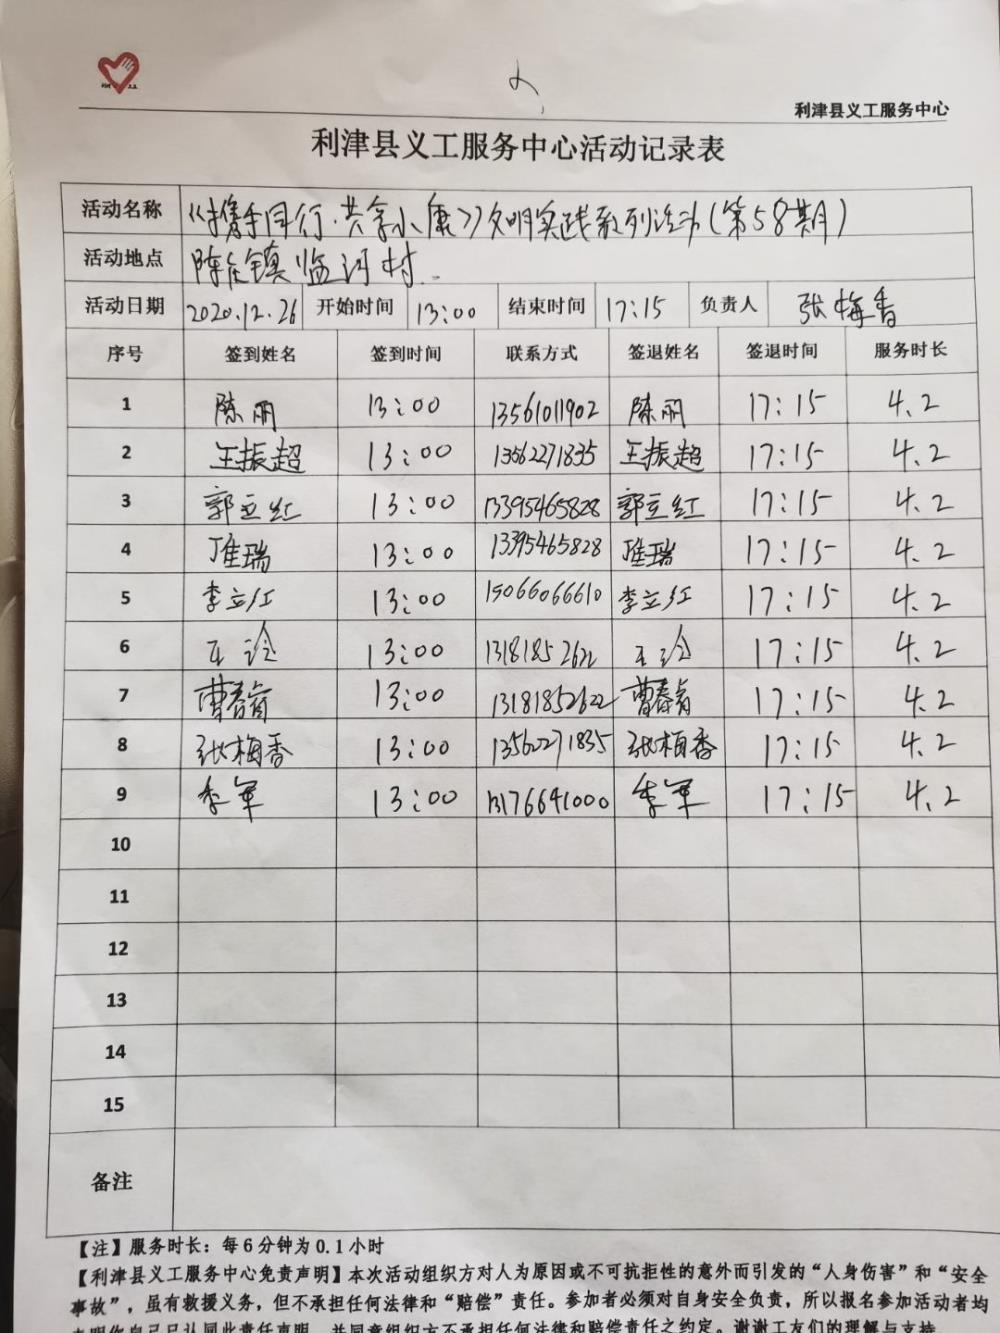 利津县义工服务中心
利津县义工服务中心活动记录表
活动名称 《携手同行·共享小康》文明实践系列活动(第58期)
活动地点 陈庄镇临河村
活动日期 2020.12.26 开始时间 13:00 结束时间 17:15 负责人 张梅香
序号 签到姓名 签到时间 联系方式 签退姓名 签退时间 服务时长
1 陈丽 13:00 13561011902 陈丽 17:15 4.2
2 王振超 13:00 13562271835 王振超 17:15 4.2
3 郭立红 13:00 13395465828 郭立红 17:15 4.2
4 瑞 13:00 13395465828 瑞 17:15 4.2
5 李立红 13:00 15066066610 李立红 17:15 4.2
6 王 13:00 13181852622 王 17:15 4.2
7 曹春 13:00 13181852622 曹春 17:15 4.2
8 张梅香 13:00 13562271835 张梅香 17:15 4.2
9 李军 13:00 13176641000 李军 17:15 4.2
10
11
12
13
14
15
备注
【注】服务时长：每6分钟为0.1小时
【利津县义工服务中心免责声明】本次活动组织方对人为原因或不可抗拒性的意外而引发的“人身伤害”和“安全
事故”，虽有救援义务，但不承担任何法律和“赔偿”责任。参加者必须对自身安全负责，所以报名参加活动者均
表明你自己已认同此责任声明，并同意组织方不承担任何法律和赔偿责任之约定。谢谢工友们的理解与支持